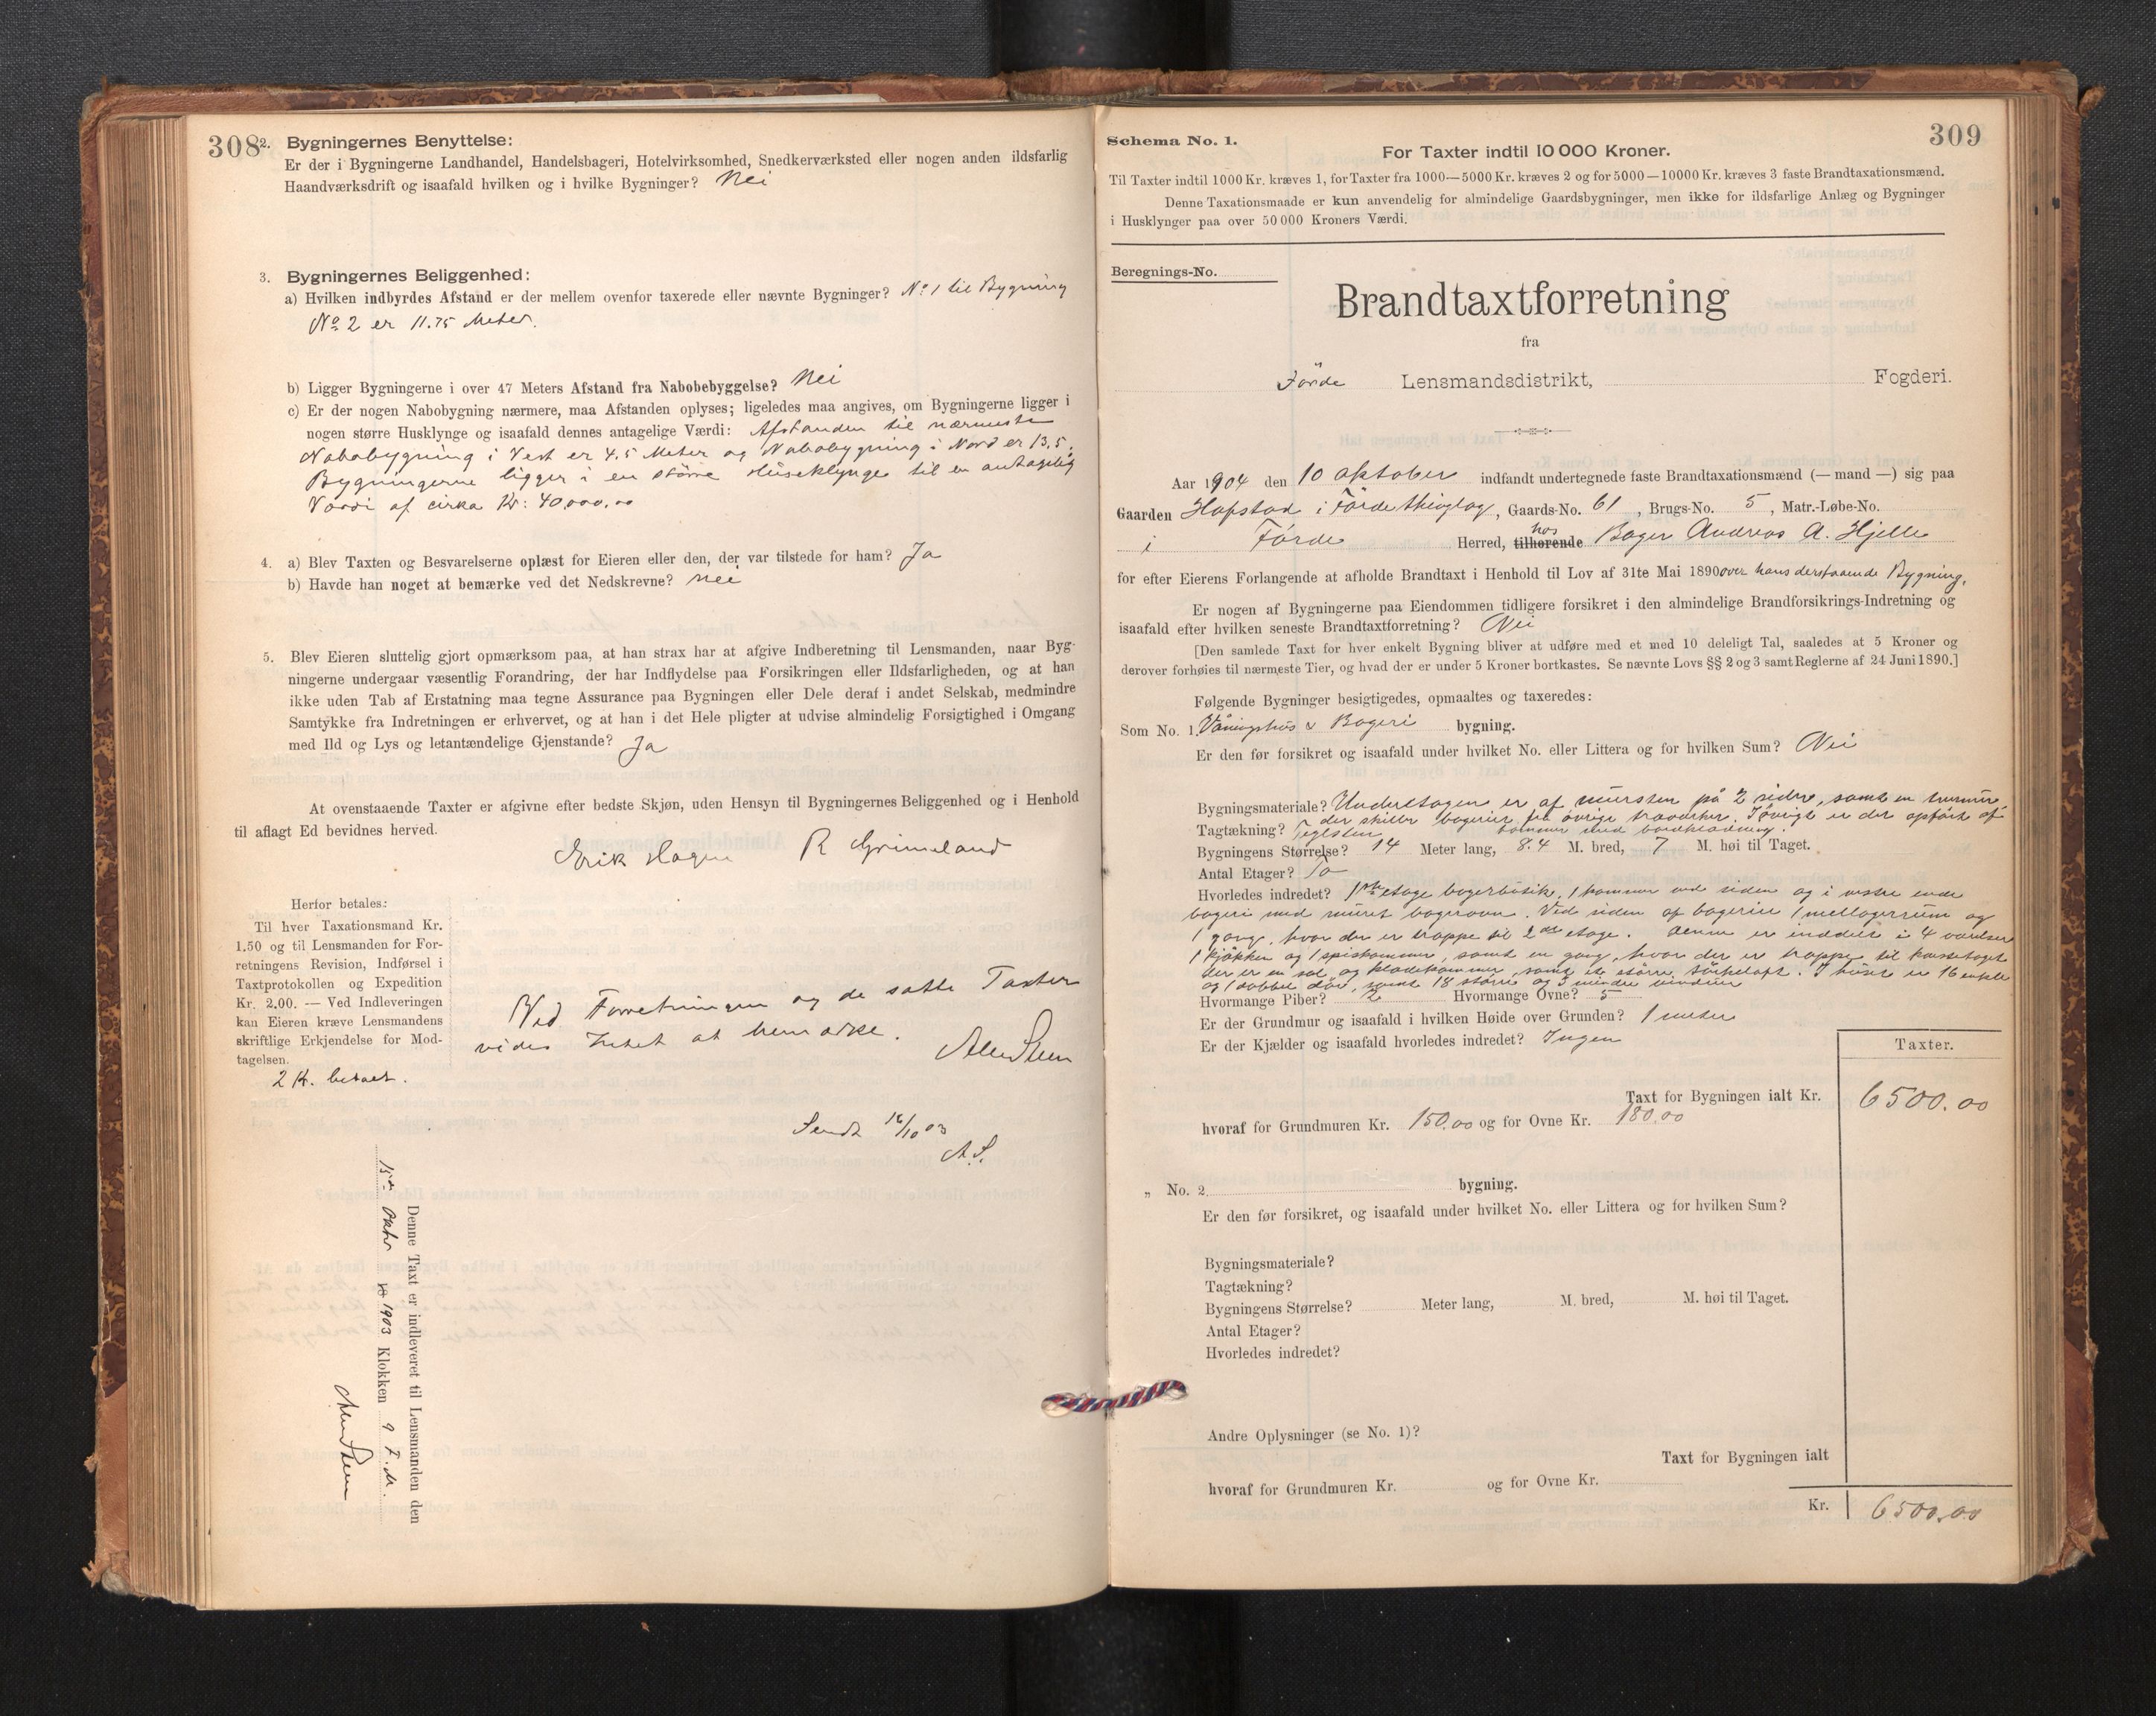 308
2. Bygningernes Benyttelse:
Er der i Bygningerne Landhandel, Handelsbageri, Hotelvirksomhed, Snedkerværksted eller nogen anden ildsfarlig
Haandværksdrift og isaafald hvilken og i hvilke Bygninger? Nei
3. Bygningernes Beliggenhed:
a) Hvilken indbyrdes Afstand er der mellem ovenfor taxerede eller nævnte Bygninger? No 1 til Bygning
No 2 er 11.75 Meter.
b) Ligger Bygningerne i over 47 Meters Afstand fra Nabobebyggelse? Nei
c) Er der nogen Nabobygning nærmere, maa Afstanden oplyses; ligeledes maa angives, om Bygningerne ligger i
nogen større Husklynge og isaafald dennes antagelige Værdi: Afstanden til nærmeste
Nabobygning i Vest er 4.5 Meter og Nabobygning i Nord er 13.5.
Bygningerne ligger i en större Huseklynge til en antagelig
Værdi af cirka Kr: 40,000,00
4. a) Blev Taxten og Besvarelserne oplæst for Eieren eller den, der var tilstede for ham? Ja
b) Havde han noget at bemærke ved det Nedskrevne? Nei
5. Blev Eieren sluttelig gjort opmærksom paa, at han strax har at afgive Indberetning til Lensmanden, naar Byg-
ningerne undergaar væsentlig Forandring, der har Indflydelse paa Forsikringen eller Ildsfarligheden, og at han
ikke uden Tab af Erstatning maa tegne Assurance paa Bygningen eller Dele deraf i andet Selskab, medmindre
Samtykke fra Indretningen er erhvervet, og at han i det Hele pligter at udvise almindelig Forsigtighed i Omgang
med Ild og Lys og letantændelige Gjenstande? Ja
At ovenstaaende Taxter er afgivne efter bedste Skjøn, uden Hensyn til Bygningernes Beliggenhed og i Henhold
til aflagt Ed bevidnes herved.
Erik Hagen R Grimeland
Herfor betales:
Til hver Taxationsmand Kr.
1.50 og til Lensmanden for For-
retningens Revision, Indførsel i
Taxtprotokollen og Expedition
Kr. 2.00. — Ved Indleveringen
kan Eieren kræve Lensmandens
skriftlige Erkjendelse for Mod-
tagelsen.
2 K. betalt.
Ved Forretningen og de satte Taxter
vides Intet at bemærke.
Sendt 16/10 03
A.S.
Denne Taxt er indleveret til Lensmanden den
15de Oktbr 18 1903 Klokken 9 F.M.
309
Schema No. 1.
For Taxter indtil 10 000 Kroner.
Til Taxter indtil 1000 Kr. kræves 1, for Taxter fra 1000—5000 Kr. kræves 2 og for 5000—10000 Kr. kræves 3 faste Brandtaxationsmænd.
Denne Taxationsmaade er kun anvendelig for almindelige Gaardsbygninger, men ikke for ildsfarlige Anlæg og Bygninger
i Husklynger paa over 50 000 Kroners Værdi.
Beregnings-No.
Brandtaxtforretning
fra
Förde Lensmandsdistrikt, Fogderi.
Aar 1904 den 10 oktober indfandt undertegnede faste Brandtaxationsmænd (— mand —) sig paa
Gaarden Hafstad i Förde thinglag, Gaards-No. 61, Brugs-No. 5, Matr.-Løbe-No.
i Förde Herred, tilhørende hos Bager Andreas A. Hjelle
for efter Eierens Forlangende at afholde Brandtaxt i Henhold til Lov af 31te Mai 1890 over hans derstaaende Bygning.
Er nogen af Bygningerne paa Eiendommen tidligere forsikret i den almindelige Brandforsikrings-Indretning og
isaafald efter hvilken seneste Brandtaxtforretning? Nei
[Den samlede Taxt for hver enkelt Bygning bliver at udføre med et med 10 deleligt Tal, saaledes at 5 Kroner og
derover forhøies til nærmeste Tier, og hvad der er under 5 Kroner bortkastes. Se nævnte Lovs §§ 2 og 3 samt Reglerne af 24 Juni 1890.]
Følgende Bygninger besigtigedes, opmaaltes og taxeredes:
Som No. 1. Våningshus & Bageri bygning.
Er den før forsikret og isaafald under hvilket No. eller Littera og for hvilken Sum? Nei
Bygningsmateriale? Underetagen er af mursten på 2 sider, samt en murmur,
der skiller bageriet fra øvrige træverker. Iøvrigt er der opfört af
tømmer med bordklædning.
Tagtækning? Teglsten
Bygningens Størrelse? 14 Meter lang, 8.4 M. bred, 7 M. høi til Taget.
Antal Etager? To
Hvorledes indredet? 1ste etage bagerbutik, 1 kammer ved siden og i vestre ende
bageri med muret bagerovn. Ved siden af bageriet 1 mellagerrum og
1 gang, hvor der er trappe til 2den etage. Denne er inddelt i 4 værelser
1 kjøkken og 1 spiskammer, samt en gang, hvor der er trappe til
der er en sal og klædekammer, samt et större törkeloft. I huset er 16 enkelte
og 1 dobbel dör, samt 18 större og 3 mindre vinduer
Hvormange Piber? 2 Hvormange Ovne? 5
Er der Grundmur og isaafald i hvilken Høide over Grunden? 1 meter
Er der Kjælder og isaafald hvorledes indredet? Ingen
Taxter.
Taxt for Bygningen ialt Kr. 6500.00
hvoraf for Grundmuren Kr. 150,00 og for Ovne Kr. 180,00
„ No. 2 bygning.
Er den før forsikret, og isaafald under hvilket No. eller Littera og for hvilken Sum?
Bygningsmateriale?
Tagtækning?
Bygningens Størrelse? Meter lang, M. bred, M. høi til Taget.
Antal Etager?
Hvorledes indredet?
Andre Oplysninger (se No. 1)?
Taxt for Bygningen ialt
hvoraf for Grundmuren Kr. og for Ovne Kr.
Kr. 6500.00